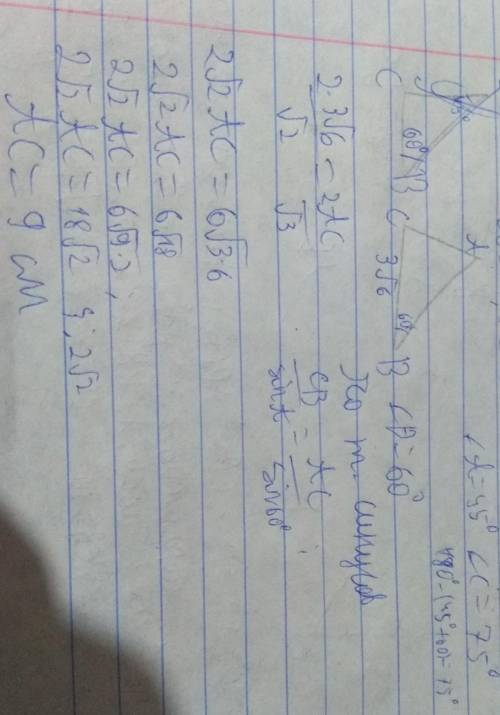 ∠A=45° ∠C=75°
180°-(45°+60°)=75°
A
C 60° B
C 3√6 60° B ∠B=60°
По т. синусов
CB/sinA = AC/sin60°
2·3√6/√2 = 2AC/√3
2√2 AC = 6√3·6
2√2 AC = 6√18
2√2 AC = 6√9·2;
2√2 AC = 18√2 |:2√2
AC = 9 см